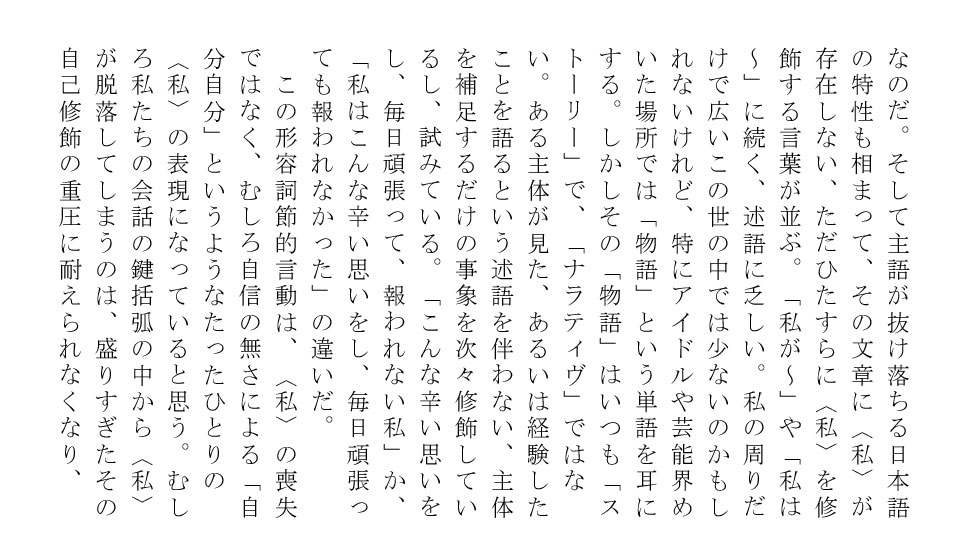 なのだ。そして主語が抜け落ちる日本語
の特性も相まって、その文章に〈私〉が
存在しない、ただひたすらに〈私〉を修
飾する言葉が並ぶ。「私が～」や「私は
～」に続く、述語に乏しい。私の周りだ
けで広いこの世の中では少ないのかもし
れないけれど、特にアイドルや芸能界め
いた場所では「物語」という単語を耳に
する。しかしその「物語」はいつも「ス
トーリー」で、「ナラティヴ」ではな
い。ある主体が見た、あるいは経験した
ことを語るという述語を伴わない、主体
を補足するだけの事象を次々修飾してい
るし、試みている。「こんな辛い思いを
し、毎日頑張って、報われない私」か、
「私はこんな辛い思いをし、毎日頑張っ
ても報われなかった」の違いだ。
この形容詞節的言動は、〈私〉の喪失
ではなく、むしろ自信の無さによる「自
分自分」というようなたったひとりの
〈私〉の表現になっていると思う。むし
ろ私たちの会話の鍵括弧の中から〈私〉
が脱落してしまうのは、盛りすぎたその
自己修飾の重圧に耐えられなくなり、